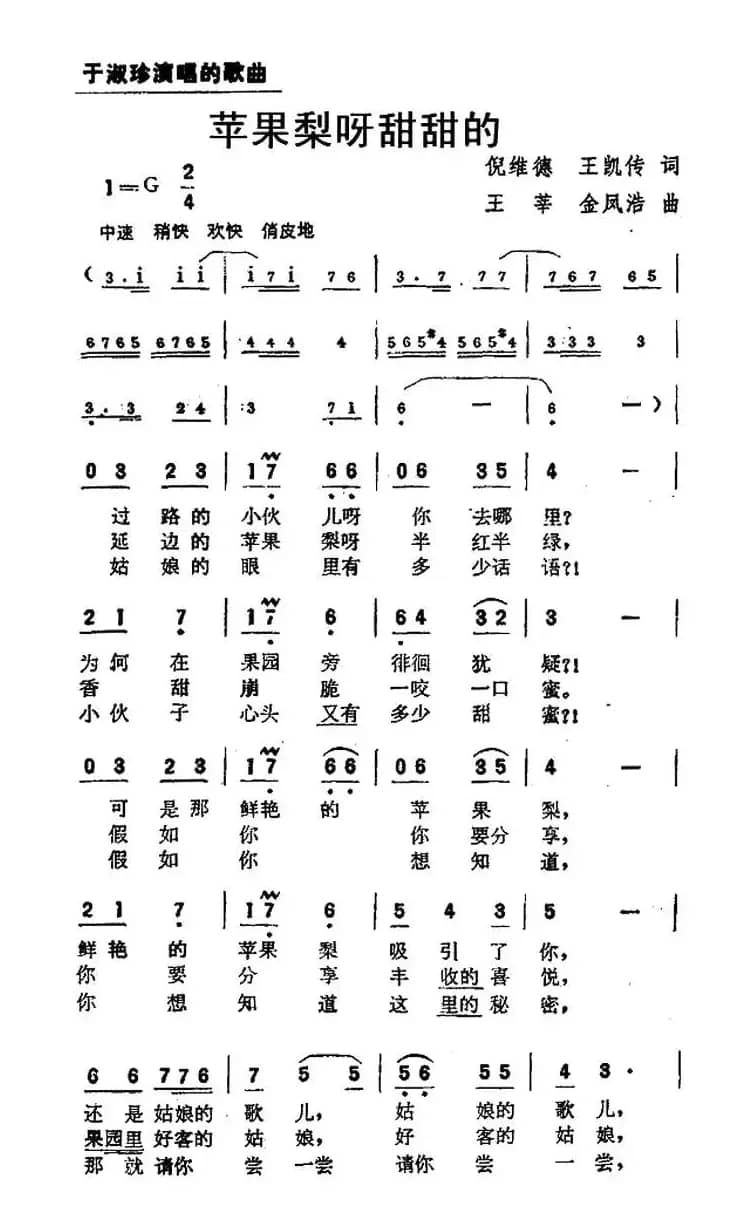 于淑珍演唱的歌曲
苹果梨呀甜甜的
倪维德 王凯传 词
1=G 2/4
王莘 金凤浩 曲
中速 稍快 欢快 俏皮地
(3. i i i | i 7 i 7 6 | 3. 7 7 7 | 7 6 7 6 5 |
6765 6765 | 4 4 4 4 | 565#4 565#4 | 3 3 3 3 |
3. 3 2 4 | 3 7 1 | 6 — | 6 — )
0 3 2 3 | 1 7 6 6 | 0 6 3 5 | 4 —
过路的小伙儿呀你去哪里?
延边的苹果梨呀半红半绿,
姑娘的眼里有多少话语?!
2 1 7 | 1 7 6 | 6 4 3 2 | 3 —
为何在果园旁徘徊犹疑?!
香甜崩脆一咬一口蜜。
小伙子心头又有多少甜蜜?!
0 3 2 3 | 1 7 6 6 | 0 6 3 5 | 4 —
可是那鲜艳的苹果梨,
假如你你要分享,
假如你想知道,
2 1 7 | 1 7 6 | 5 4 3 | 5 — |
鲜艳的苹果梨吸引了你,
你要分享丰收的喜悦,
你想知道这里的秘密,
6 6 7 7 6 | 7 5 5 | 5 6 5 5 | 4 3. |
还是姑娘的歌儿,姑娘的歌儿,
果园里好客的姑娘,好客的姑娘,
那就请你尝一尝请你尝一尝,